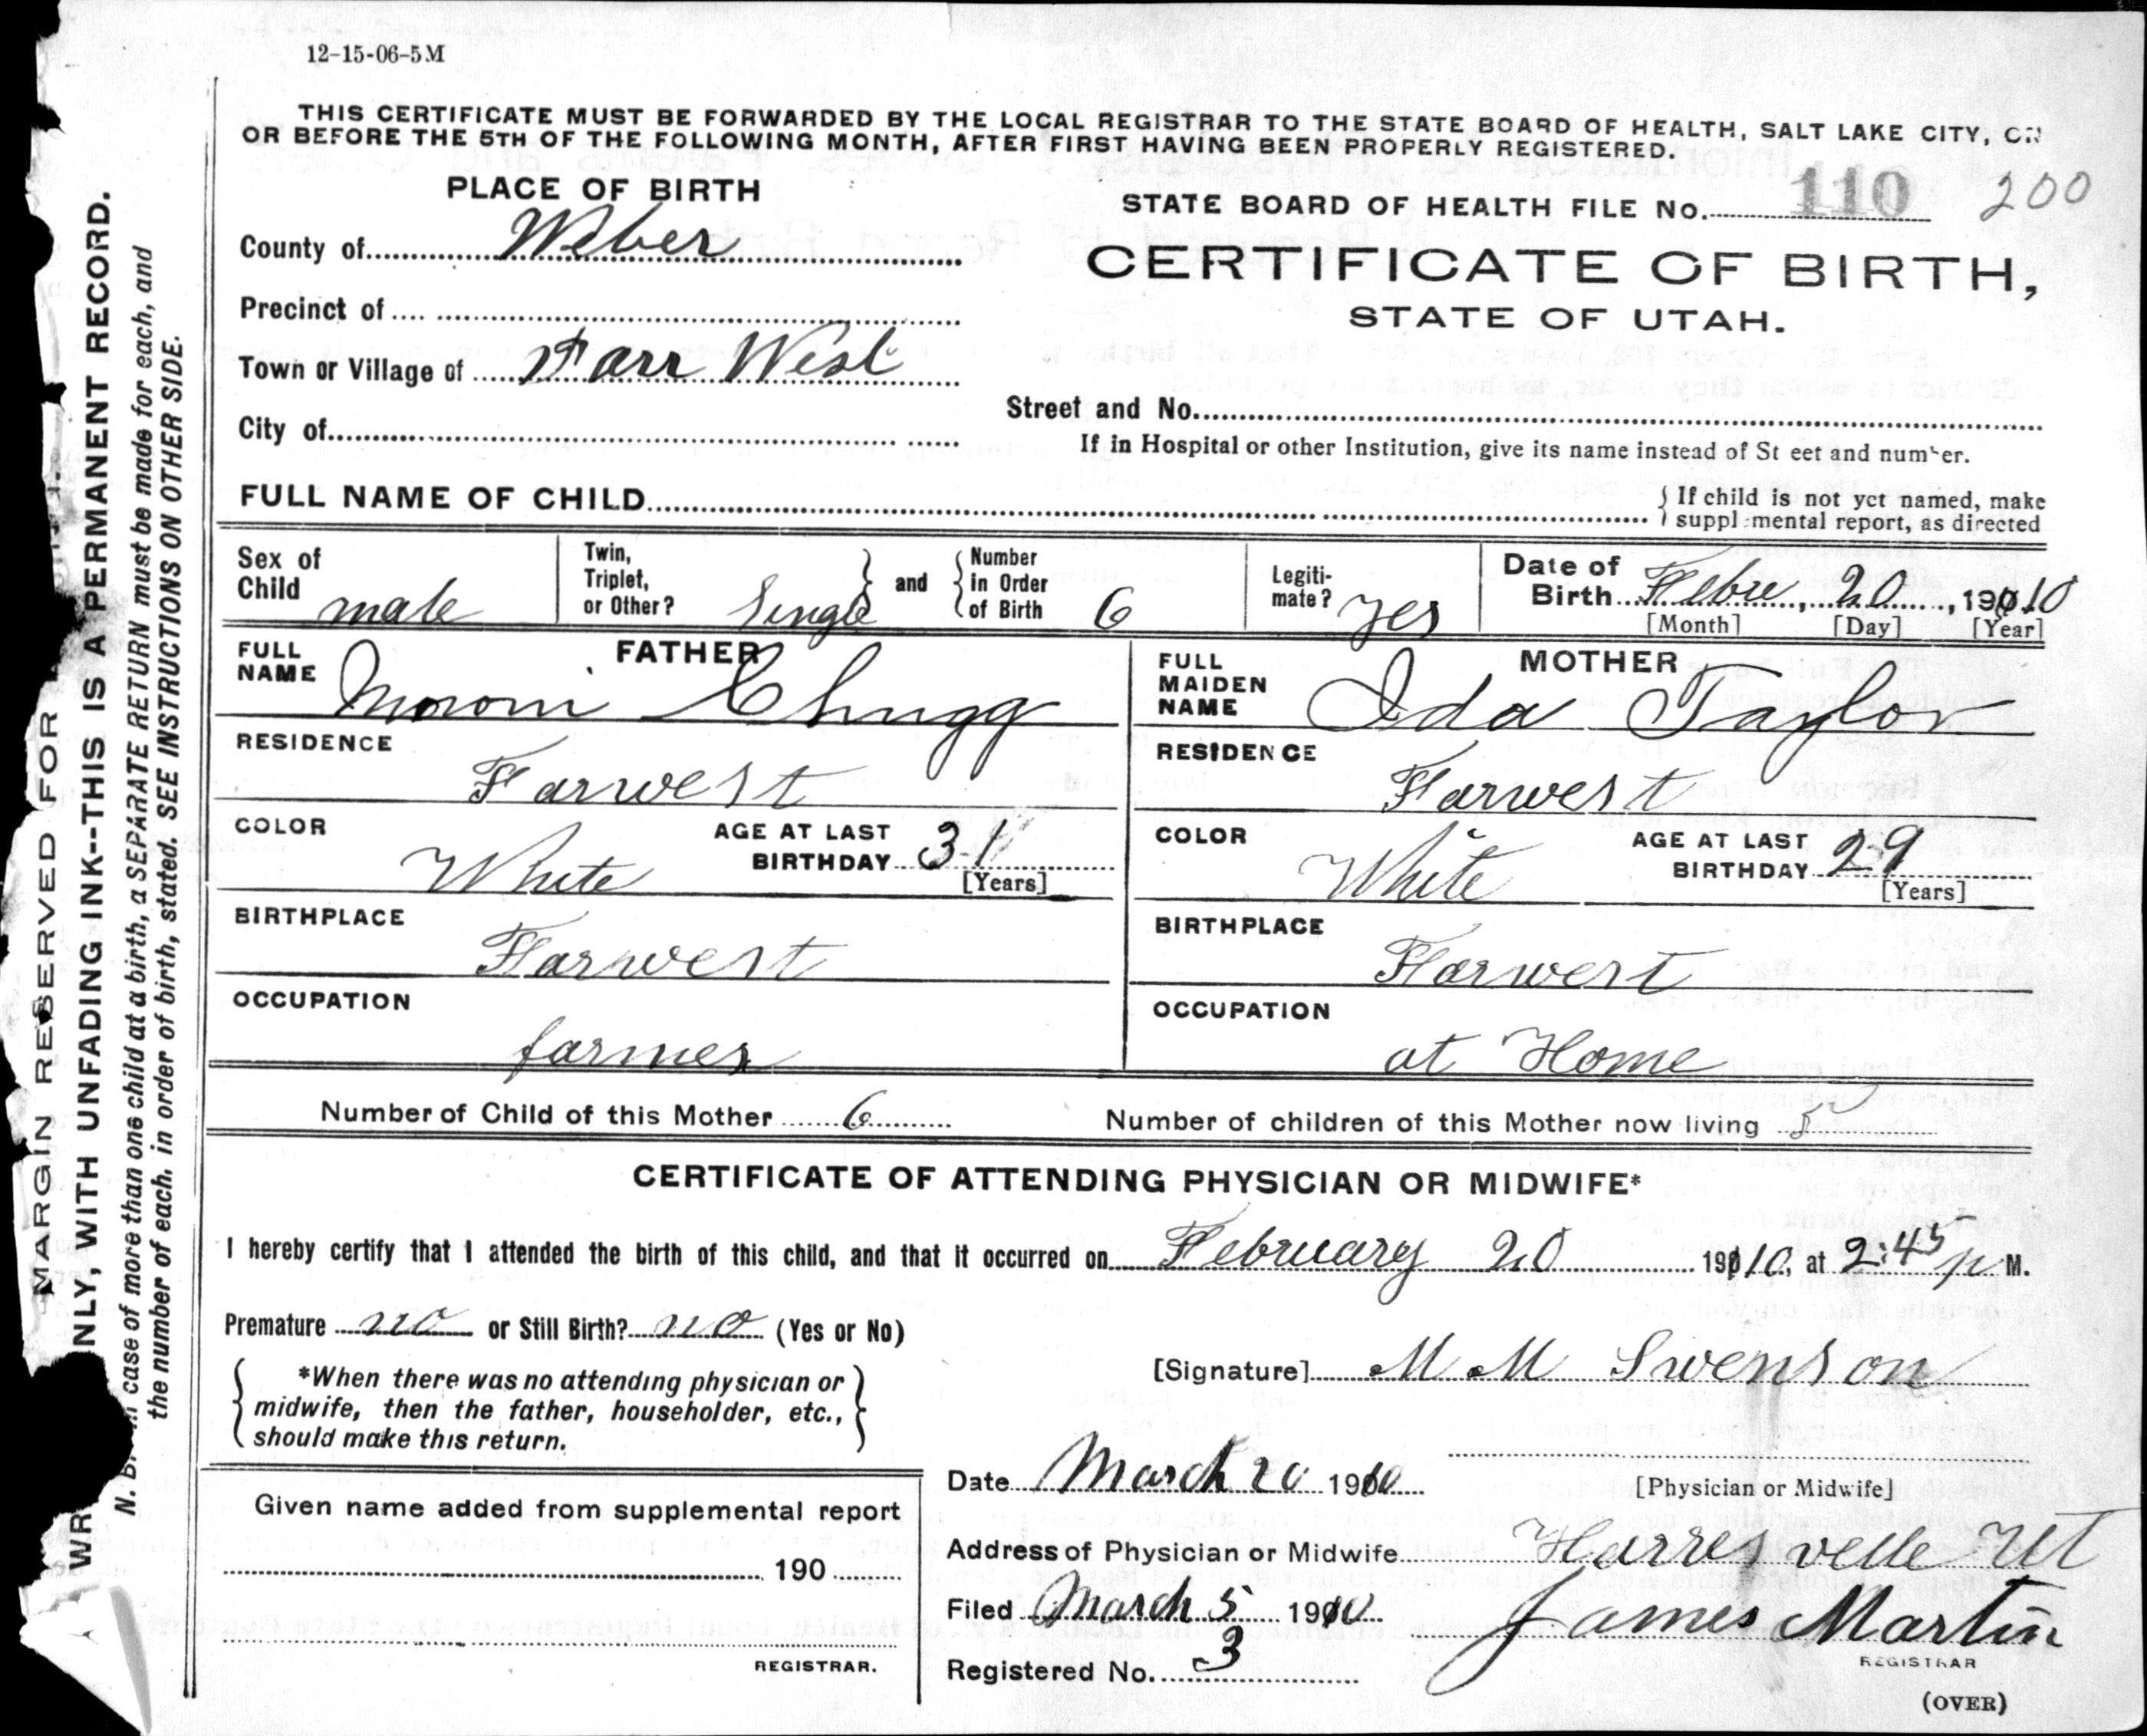 12-15-06-5M
THIS CERTIFICATE MUST BE FORWARDED BY THE LOCAL REGISTRAR TO THE STATE BOARD OF HEALTH, SALT LAKE CITY, ON
OR BEFORE THE 5TH OF THE FOLLOWING MONTH, AFTER FIRST HAVING BEEN PROPERLY REGISTERED.
PLACE OF BIRTH
STATE BOARD OF HEALTH FILE No. 110 200
County of Weber
CERTIFICATE OF BIRTH,
STATE OF UTAH.
Precinct of
Town or Village of Farr West
Street and No.
City of
If in Hospital or other Institution, give its name instead of St eet and number.
FULL NAME OF CHILD
{ If child is not yet named, make
suppl mental report, as directed
Sex of Child male
Twin, Triplet, or Other? Single } and { Number in Order of Birth 6
Legiti-mate? yes
Date of Birth Febru, 20, 1910
[Month] [Day] [Year]
FATHER
FULL NAME Moroni Chugg
MOTHER
FULL MAIDEN NAME Ida Taylor
RESIDENCE Farwest
RESIDENCE Farwest
COLOR White
AGE AT LAST BIRTHDAY 31 [Years]
COLOR White
AGE AT LAST BIRTHDAY 29 [Years]
BIRTHPLACE Farwest
BIRTHPLACE Farwest
OCCUPATION farmer
OCCUPATION at Home
Number of Child of this Mother 6
Number of children of this Mother now living 5
CERTIFICATE OF ATTENDING PHYSICIAN OR MIDWIFE*
I hereby certify that I attended the birth of this child, and that it occurred on February 20 1910, at 2:45 p M.
Premature no or Still Birth? no (Yes or No)
{ *When there was no attending physician or
midwife, then the father, householder, etc.,
should make this return. }
[Signature] M M Swenson
Date March 20 1910
[Physician or Midwife]
Given name added from supplemental report
190
REGISTRAR.
Address of Physician or Midwife Harresvelle Ut
Filed March 5 1910
James Martin
REGISTRAR
Registered No. 3
(OVER)
MARGIN RESERVED FOR
WR NLY, WITH UNFADING INK--THIS IS A PERMANENT RECORD.
N. B. case of more than one child at a birth, a SEPARATE RETURN must be made for each, and
the number of each, in order of birth, stated. SEE INSTRUCTIONS ON OTHER SIDE.